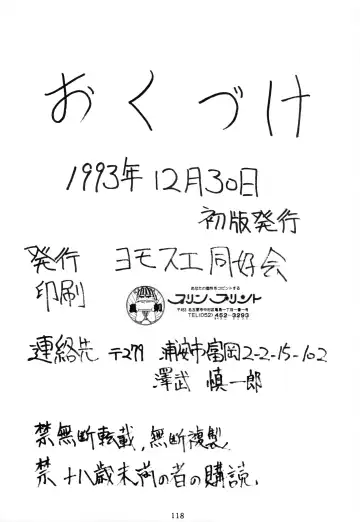 おくづけ
1993年12月30日
初版発行
発行 ヨモスエ同好会
印刷
あなたの個性をコピントする
プリンプリント
〒453 名古屋市中村区亀島一丁目一番一号
TEL(052) 452-3293
連絡先 〒279 浦安市富岡2-2-15-102
澤武 慎一郎
禁無断転載,無断複製
禁十八歳未満の者の購読.
118